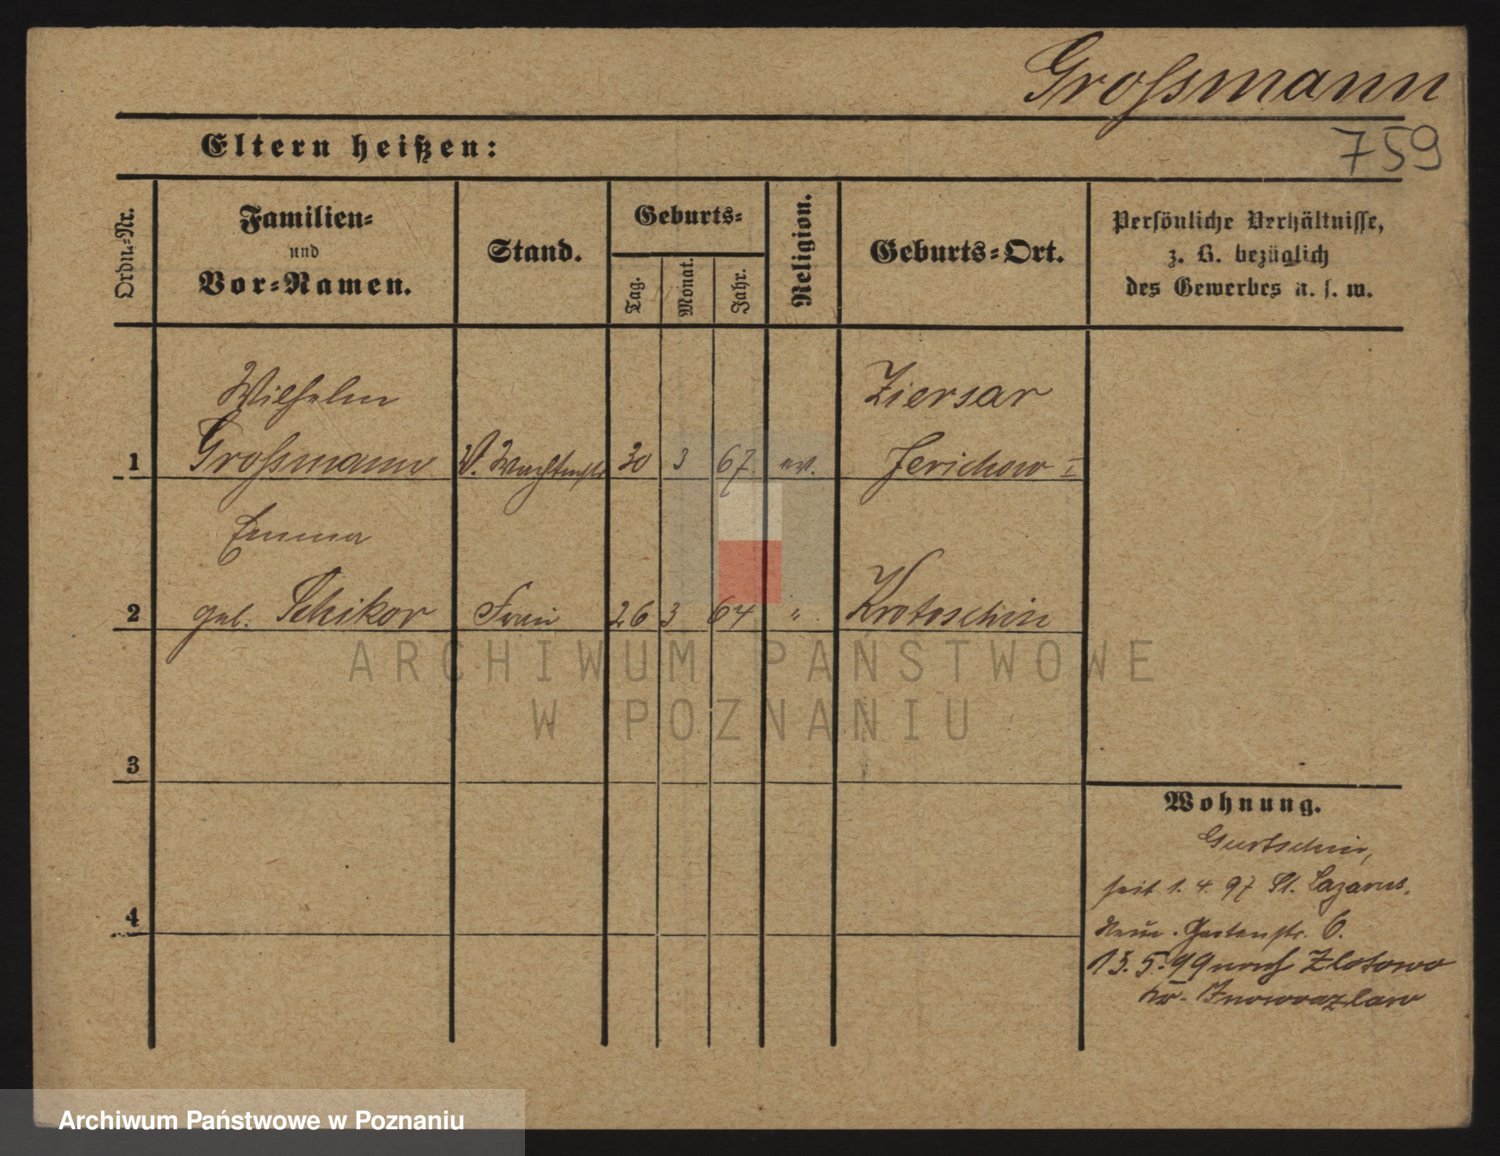 Großmann
759
Eltern heißen:
Ordn.-Nr.
Familien-
und
Vor-Namen.
Stand.
Geburts-
Tag.
Monat.
Jahr.
Religion.
Geburts-Ort.
Persönliche Verhältnisse,
z. B. bezüglich
des Gewerbes u. s. w.
Wilhelm
Ziersar
1 Großmann V. Wachtmstr 30 3 67. ev. Jerichow I
Emma
2 geb. Schikor Frau 26 3 64 " Krotoschin
ARCHIWUM PAŃSTWOWE
W POZNANIU
3
4
Wohnung.
Gurtschin,
seit 1. 4. 97 St. Lazarus,
Neue Gartenstr. 6.
13. 5. 99 nach Zlotowo
Kr. Inowrazlaw
Archiwum Państwowe w Poznaniu